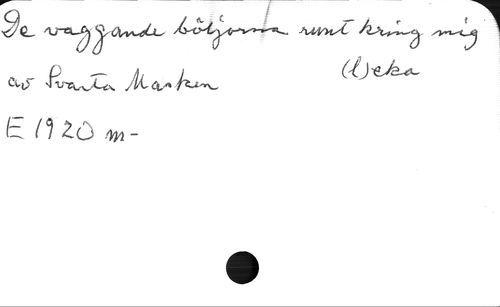 De vaggande böljorna runt kring mig
av Svarta Masken (l)eka
E 1920 m-